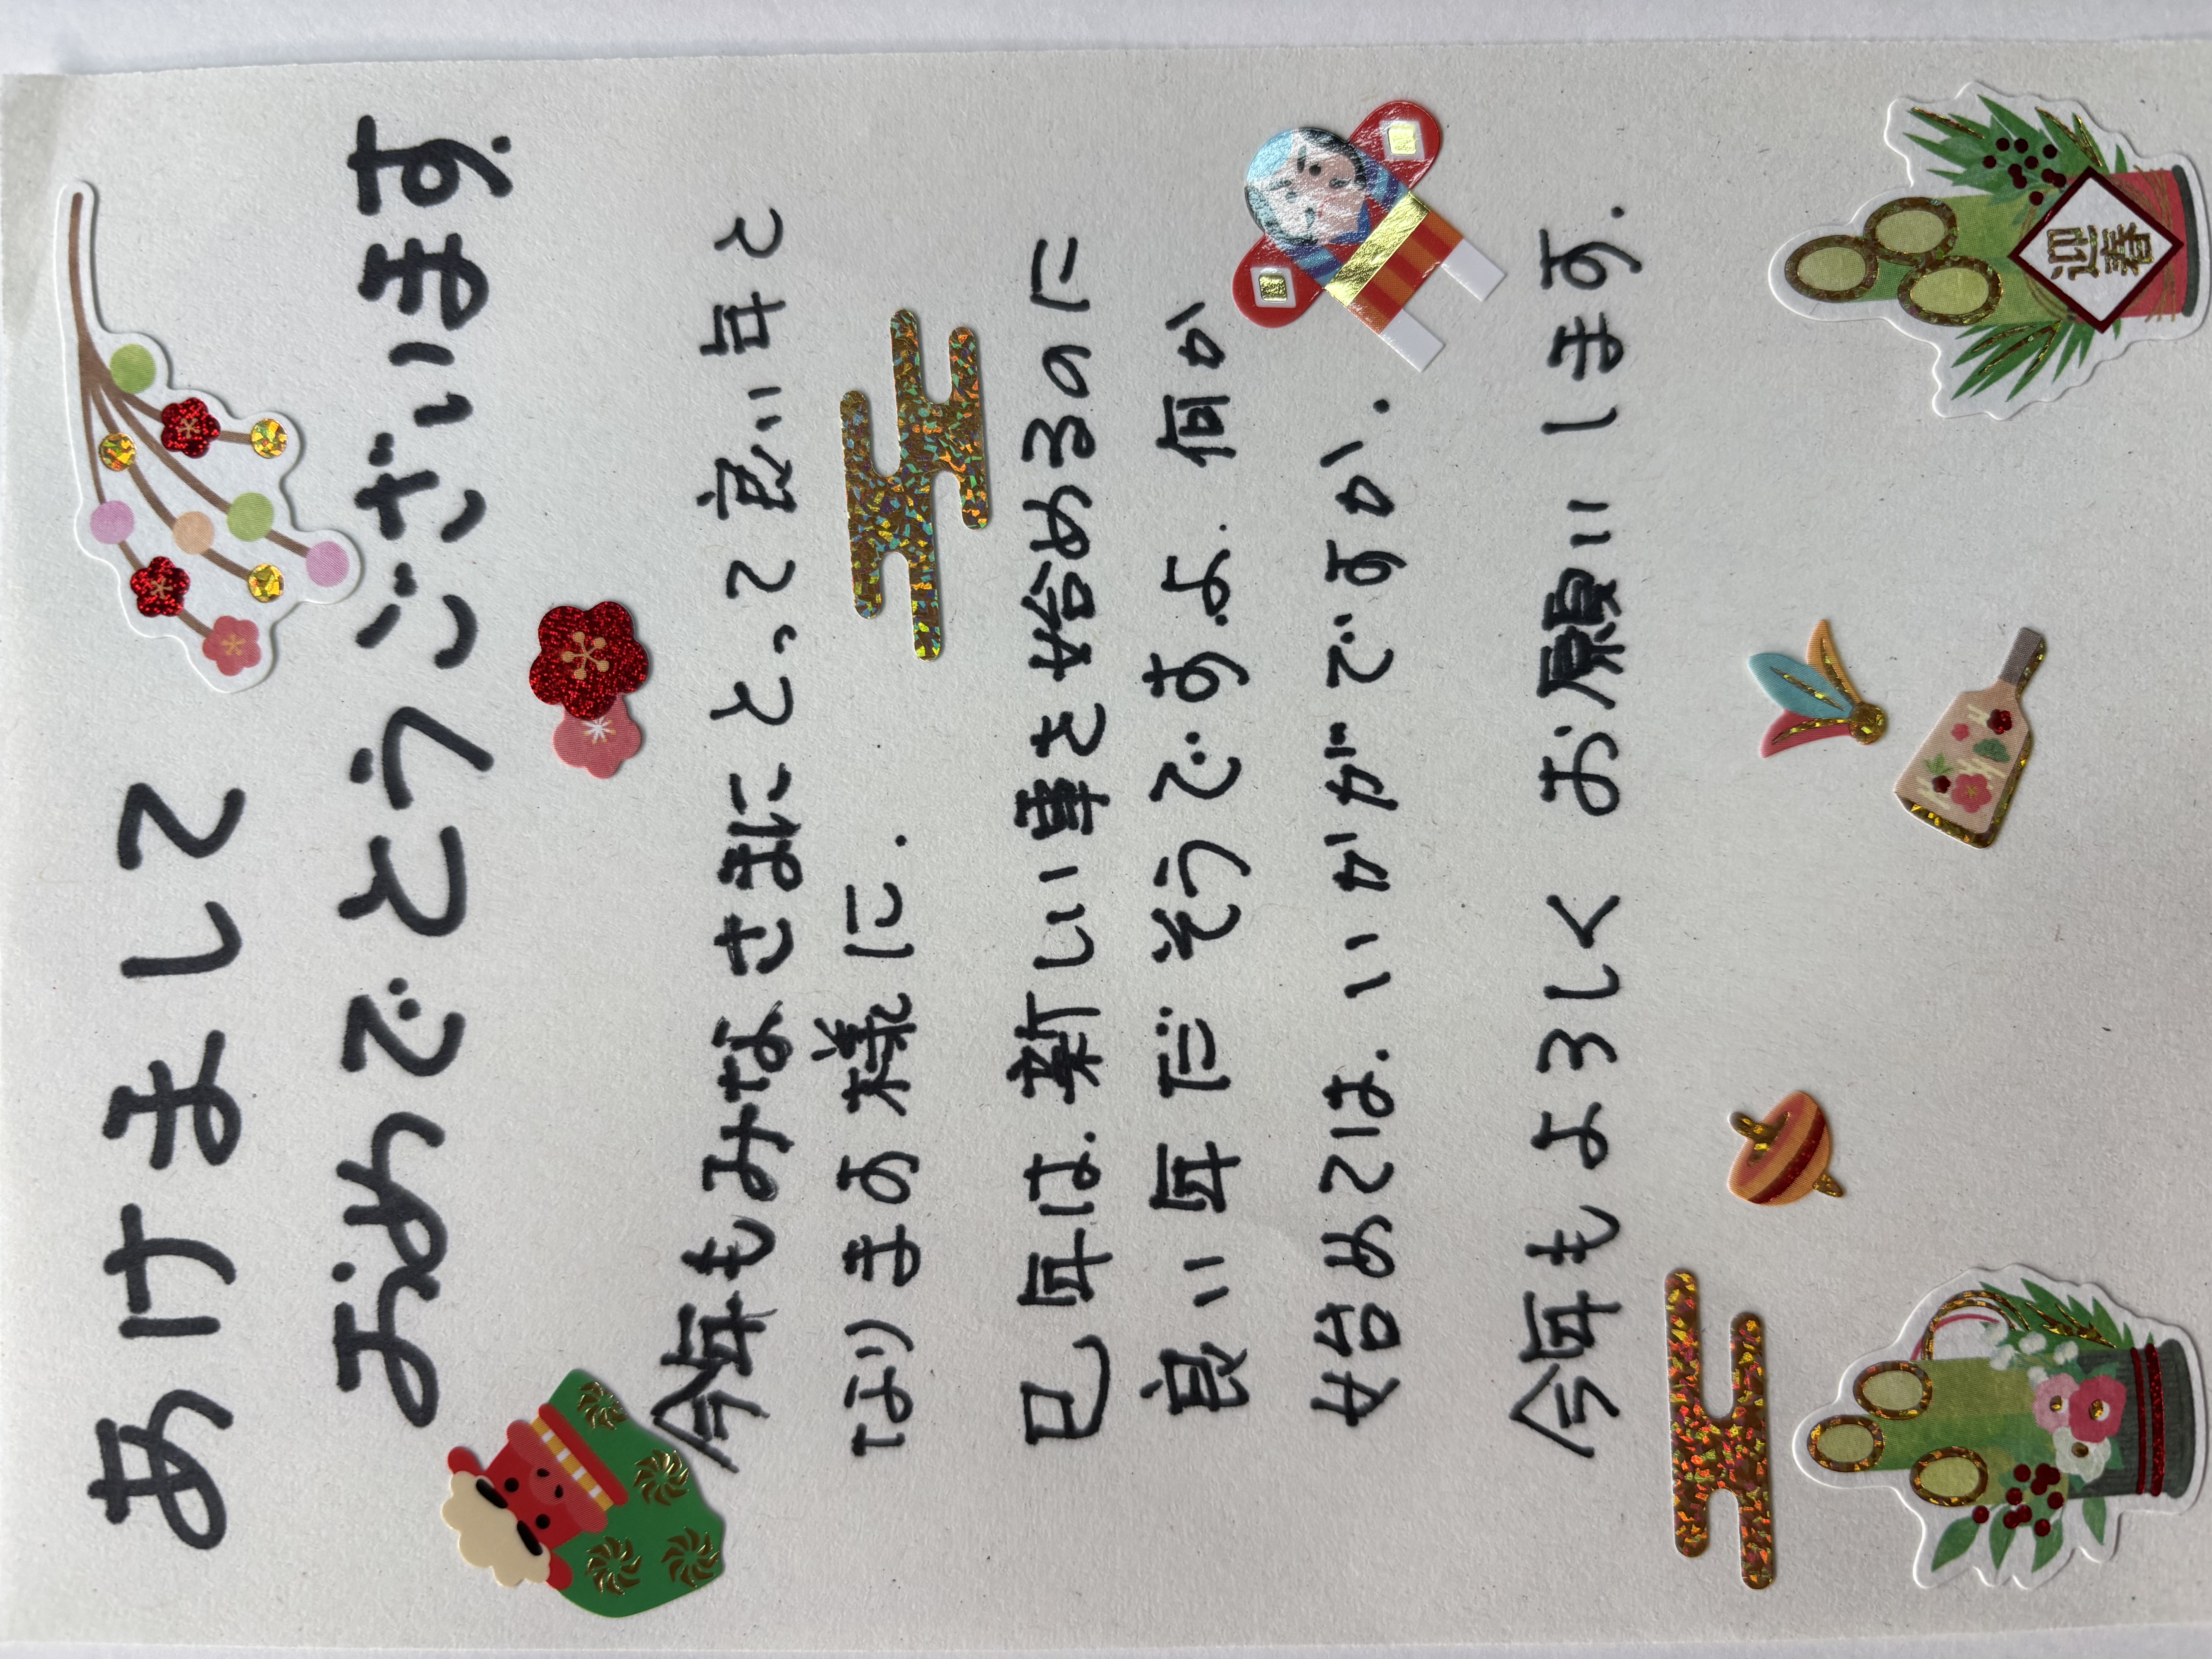 あけまして
おめでとうございます
今年もみなさまにとって良い年と
なりますの様に.
巳年は.新しい事を始めるのに
良い年だそうですよ.何か
始めては.いかがですか.
今年もよろしくお願いします.
迎春